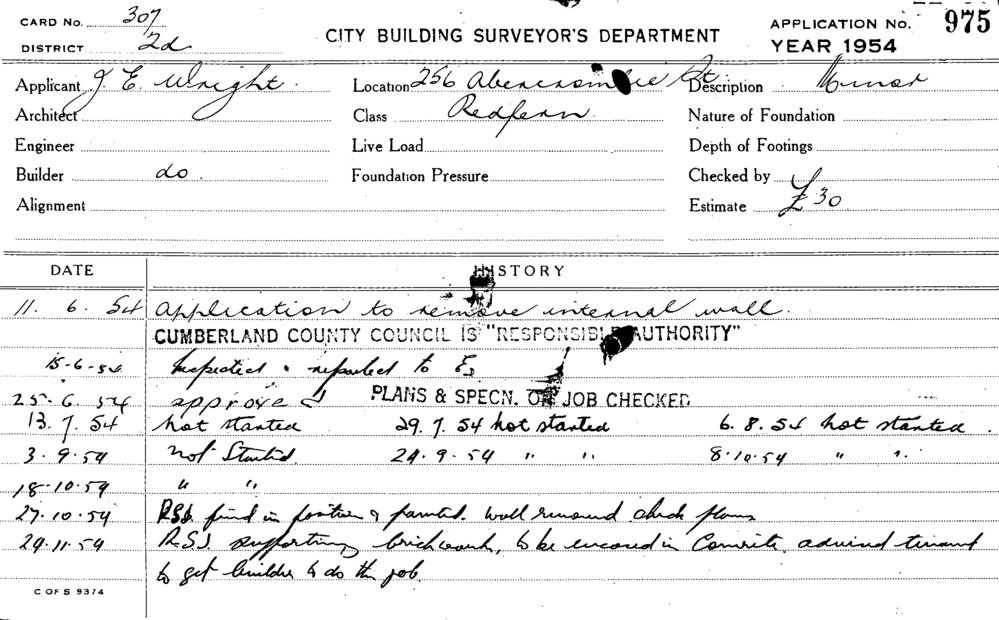 CARD No. 307
DISTRICT 2d
CITY BUILDING SURVEYOR'S DEPARTMENT
APPLICATION No. 975
YEAR 1954
Applicant J. E. Wright. Location 256 Abercrombie St Description Minor
Architect Class Redfern. Nature of Foundation
Engineer Live Load Depth of Footings
Builder do. Foundation Pressure Checked by
Alignment Estimate £30
DATE HISTORY
11. 6. 54 Application to remove internal wall.
CUMBERLAND COUNTY COUNCIL IS "RESPONSIBLE AUTHORITY"
15-6-54 Inspected & reported to
25.6.54 approved PLANS & SPECN. OF JOB CHECKED
13.7.54 not started 29.7.54 not started 6.8.54 not started.
3.9.54 Not Started. 24.9.54 " " 8.10.54 " "
18.10.54 " "
27.10.54 R.S.J. fixed in position & painted. wall removed check plans
29.11.54 R.S.J. supporting brickwork, to be encased in Concrete. advised tenant
to get builder to do the job.
C OF S 9374